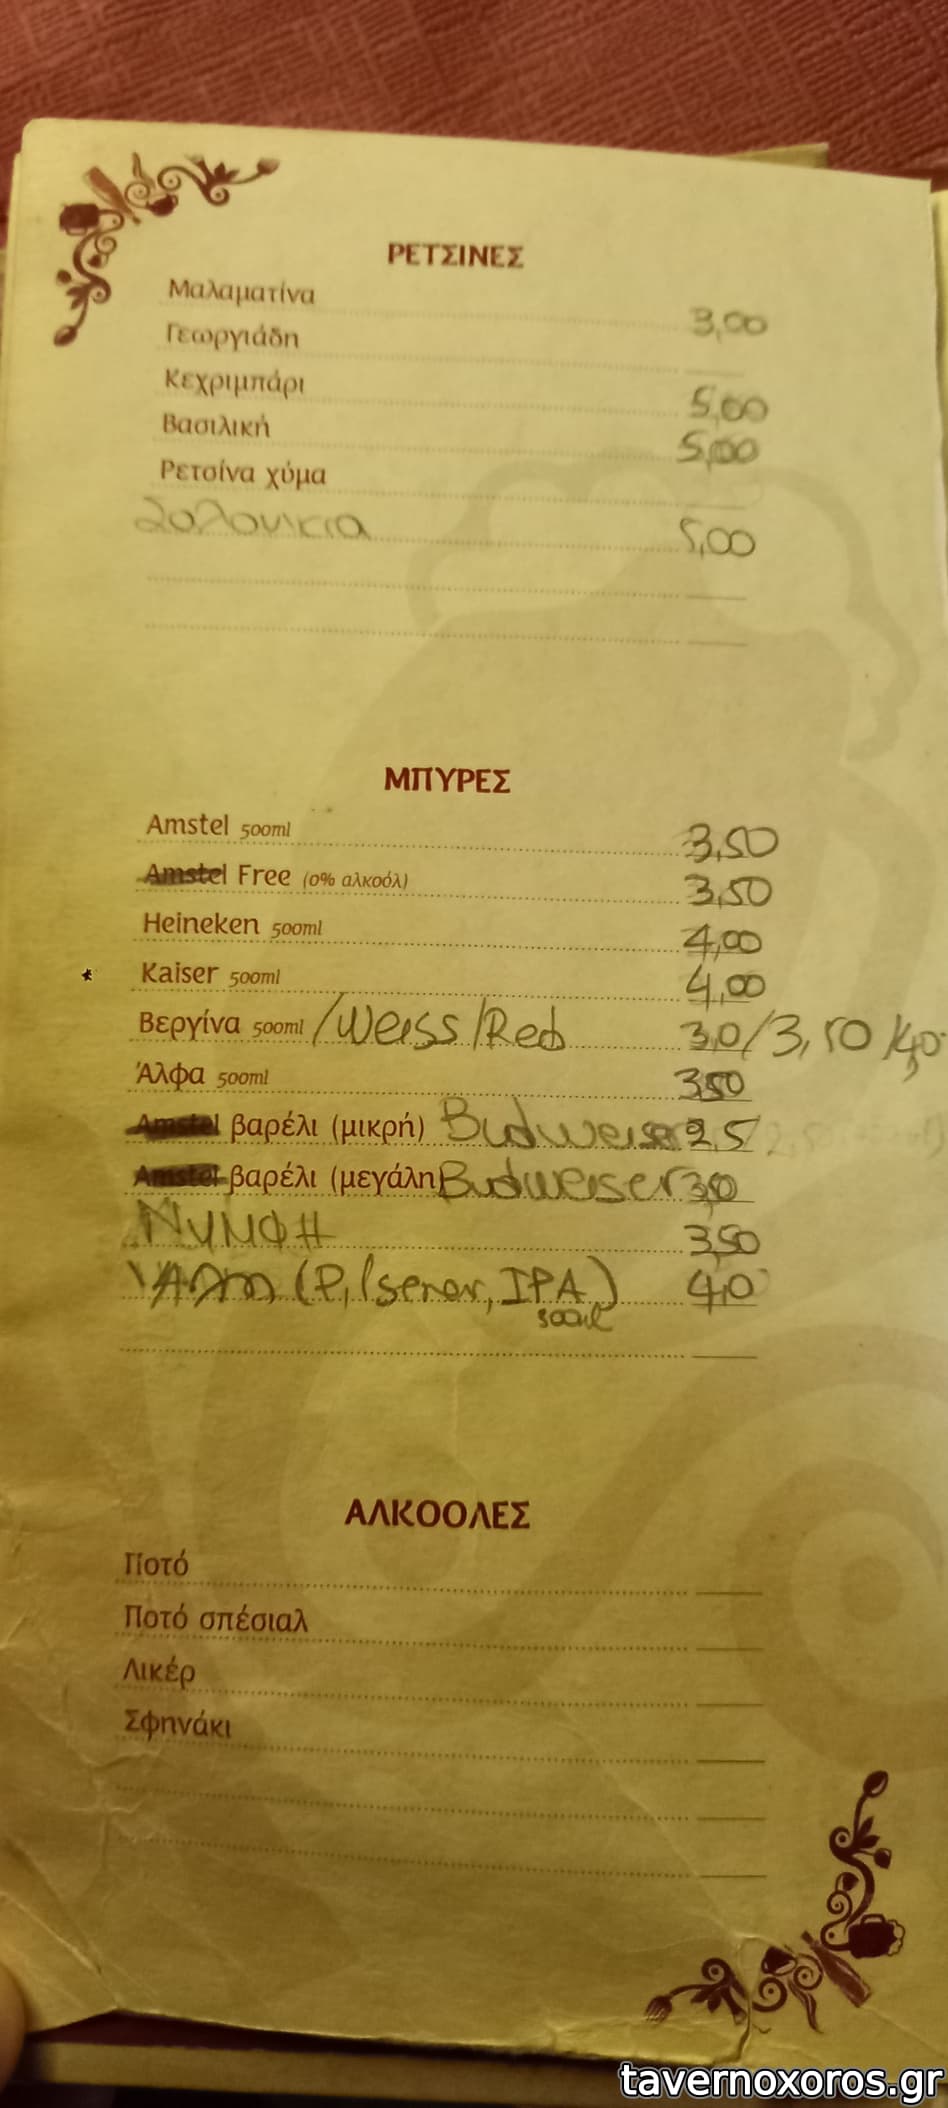 ΡΕΤΣΙΝΕΣ
Μαλαματίνα 3,00
Γεωργιάδη
Κεχριμπάρι 5,00
Βασιλική 5,00
Ρετσίνα χύμα
5,00
ΜΠΥΡΕΣ
Amstel 500ml 3,50
Amstel Free (0% αλκοόλ) 3,50
Heineken 500ml 4,00
Kaiser 500ml 4,00
Βεργίνα 500ml /Weiss/Red 3,0/3,50/4,0
Άλφα 500ml 3,50
Amstel βαρέλι (μικρή) Budweiser 2,5
Amstel βαρέλι (μεγάλη) Budweiser 3,0
ΝΥΜΦΗ 3,50
(Pilsener, IPA) 4,0
500ml
ΑΛΚΟΟΛΕΣ
Ποτό
Ποτό σπέσιαλ
Λικέρ
Σφηνάκι
tavernoxoros.gr